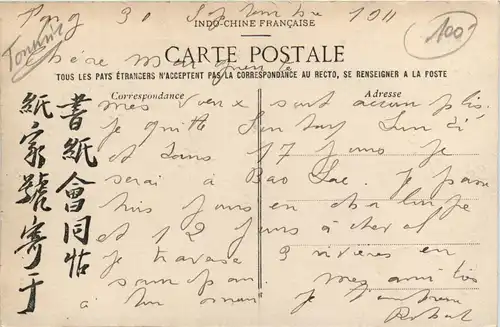 30 Septembre 1911
INDO-CHINE FRANÇAISE
CARTE POSTALE
Tonkin
100
Chère Marguerite
TOUS LES PAYS ÉTRANGERS N'ACCEPTENT PAS LA CORRESPONDANCE AU RECTO, SE RENSEIGNER A LA POSTE
Correspondance
Adresse
mes vœux sont accomplis.
Je quitte Sontay Lundi
et dans 17 jours je
serai à Bao Lac. Je passe
jours en chaloupe
et 12 jours à cheval
je traverse 3 rivières en
sampan.
à ton mari
je
Robert
書紙會同帖
紙家號寄于